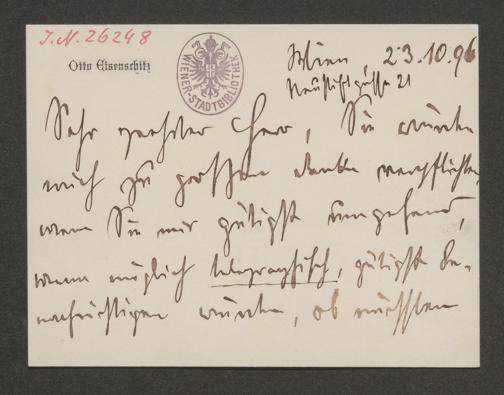 J.N. 26248
Otto Eisenschitz
WIENER-STADTBIBLIOTHEK
Wien, 23.10.96
Neustiftgasse 21
Sehr geehrter Herr, Sie würden
mich zu großem Danke verpflichten,
wenn Sie mir gütigst umgehend,
wenn möglich telegraphisch, gütigst be-
nachrichtigen würden, ob nächsten